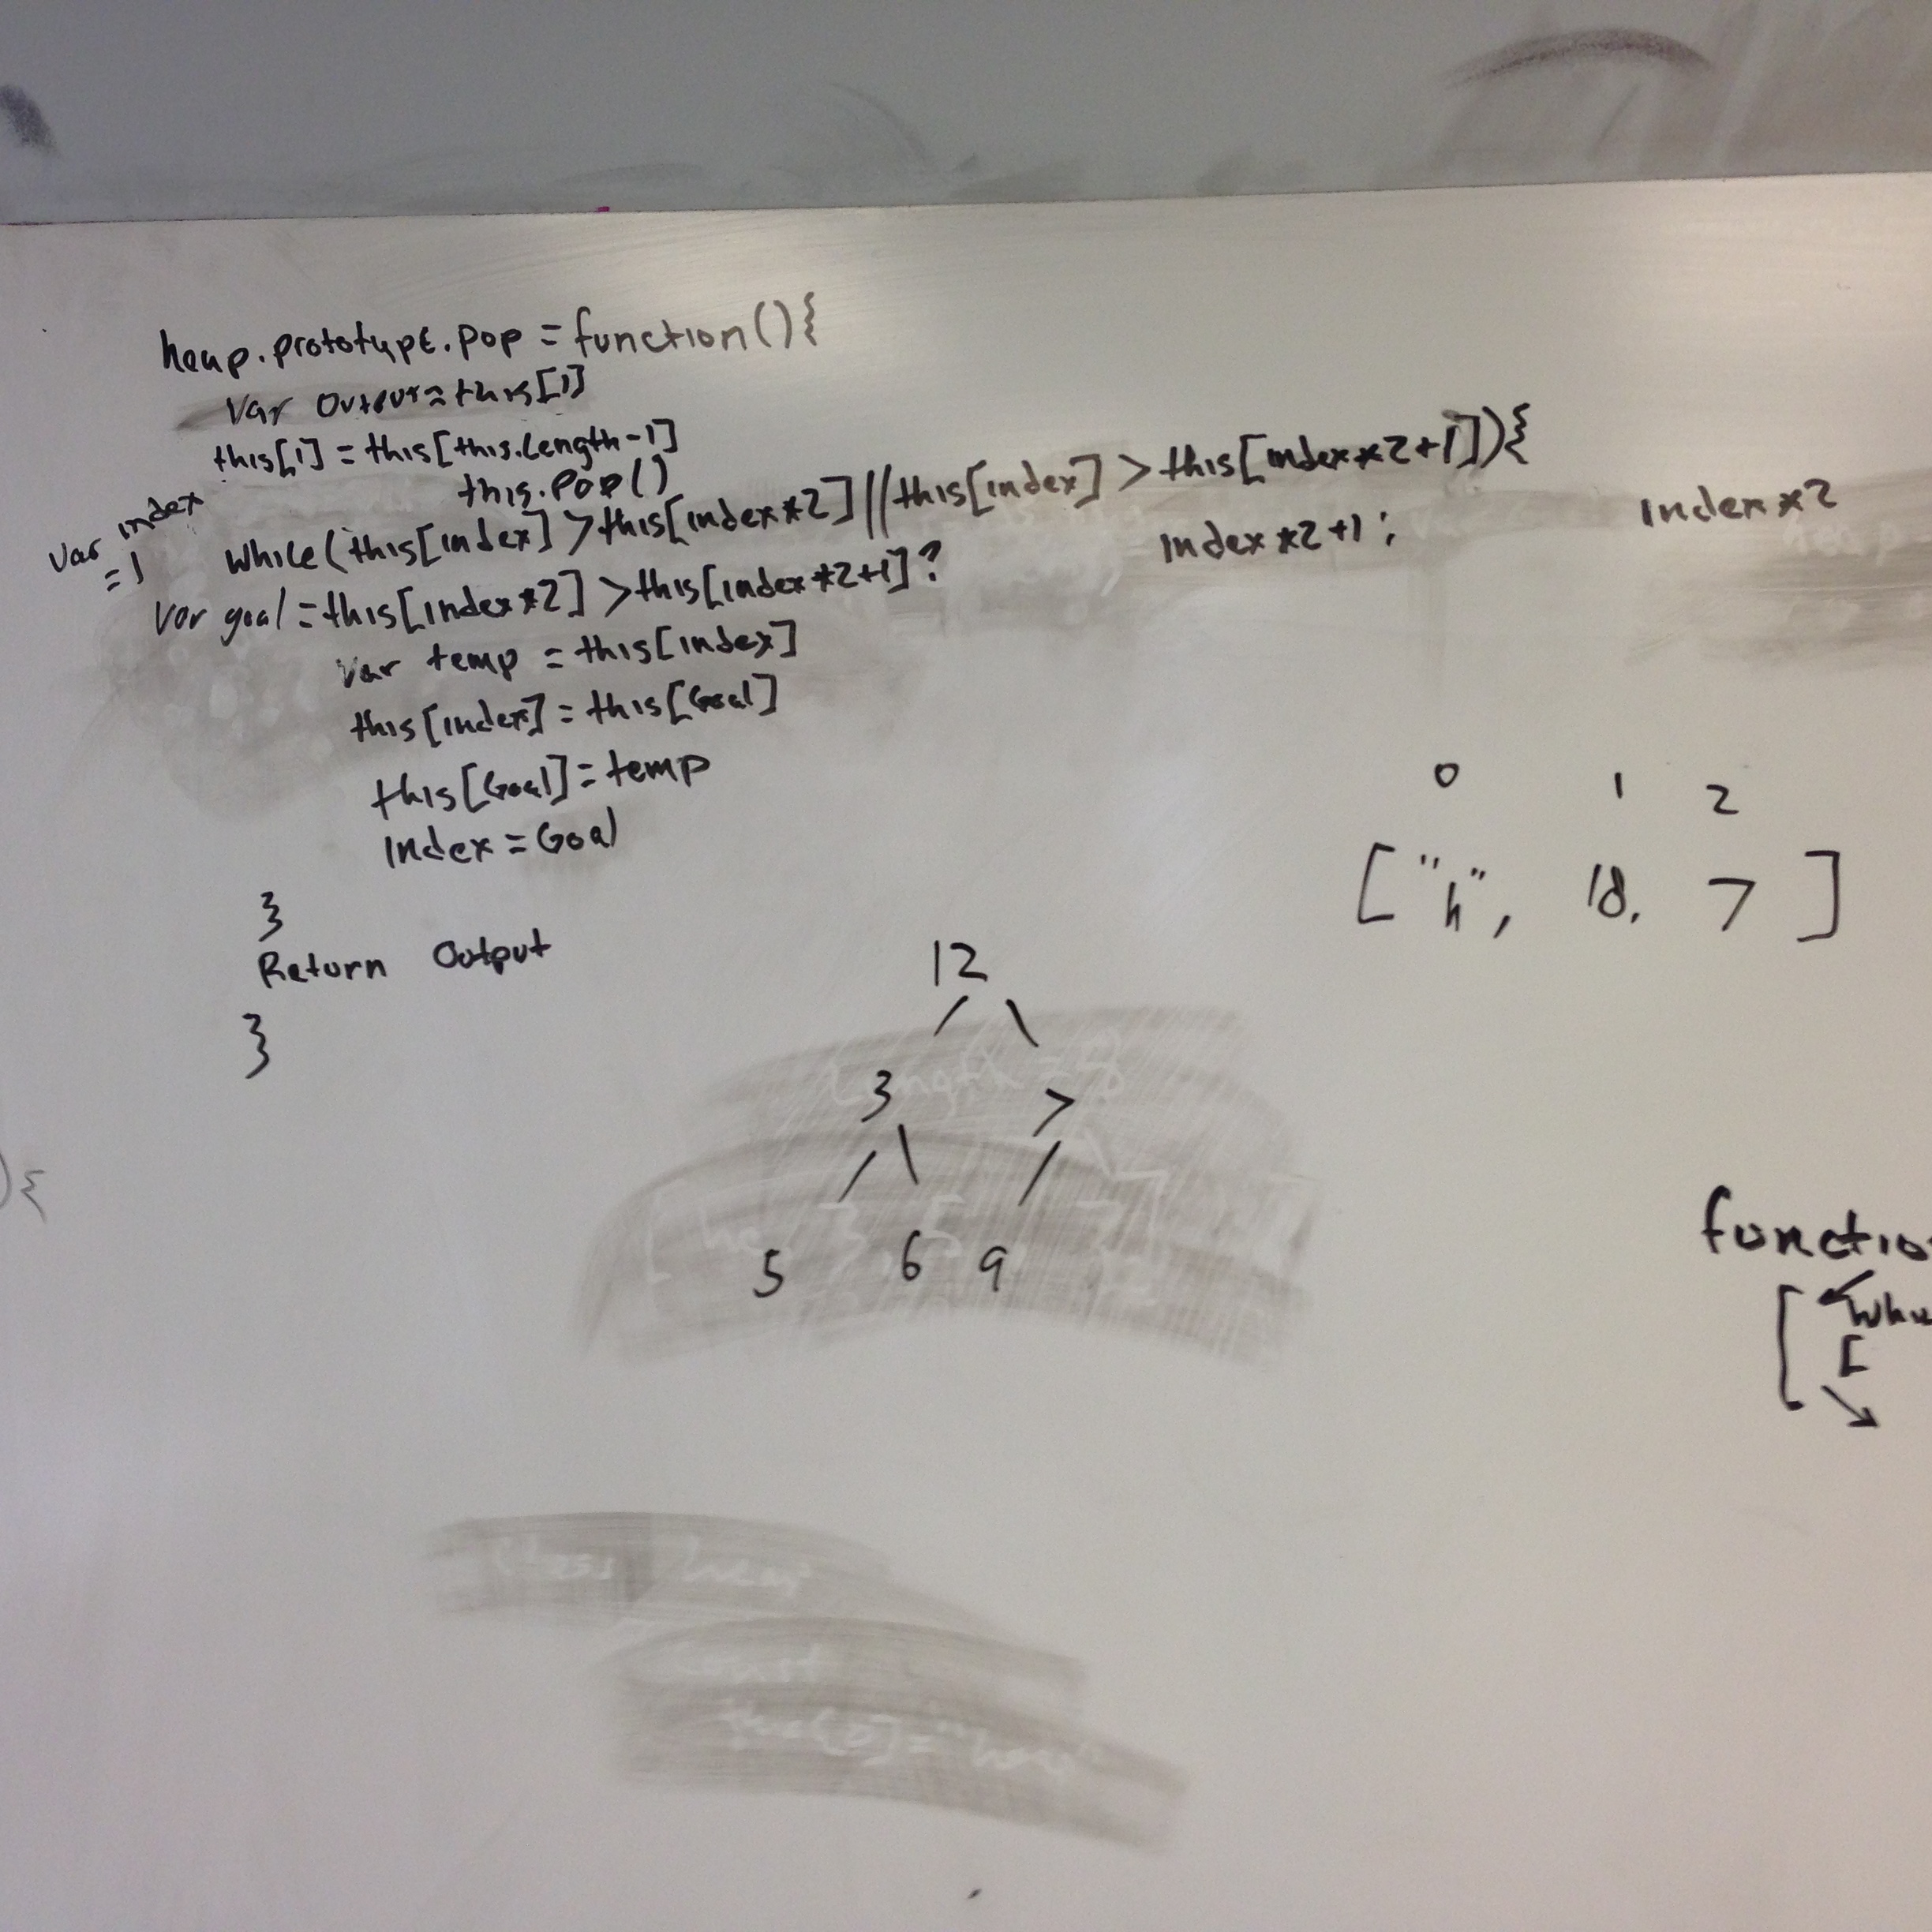 heap.prototype.pop = function(){
var output = this[1]
this[1] = this[this.length-1]
this.pop()
var index = 1
while(this[index] > this[index*2] || this[index] > this[index*2+1]){
var goal = this[index*2] > this[index*2+1] ? index*2+1 : index*2
var temp = this[index]
this[index] = this[Goal]
this[Goal] = temp
Index = Goal
}
Return Output
}
0 1 2
["h", 18, 7]
12
3 7
5 6 9
){
length = 8
functio
[